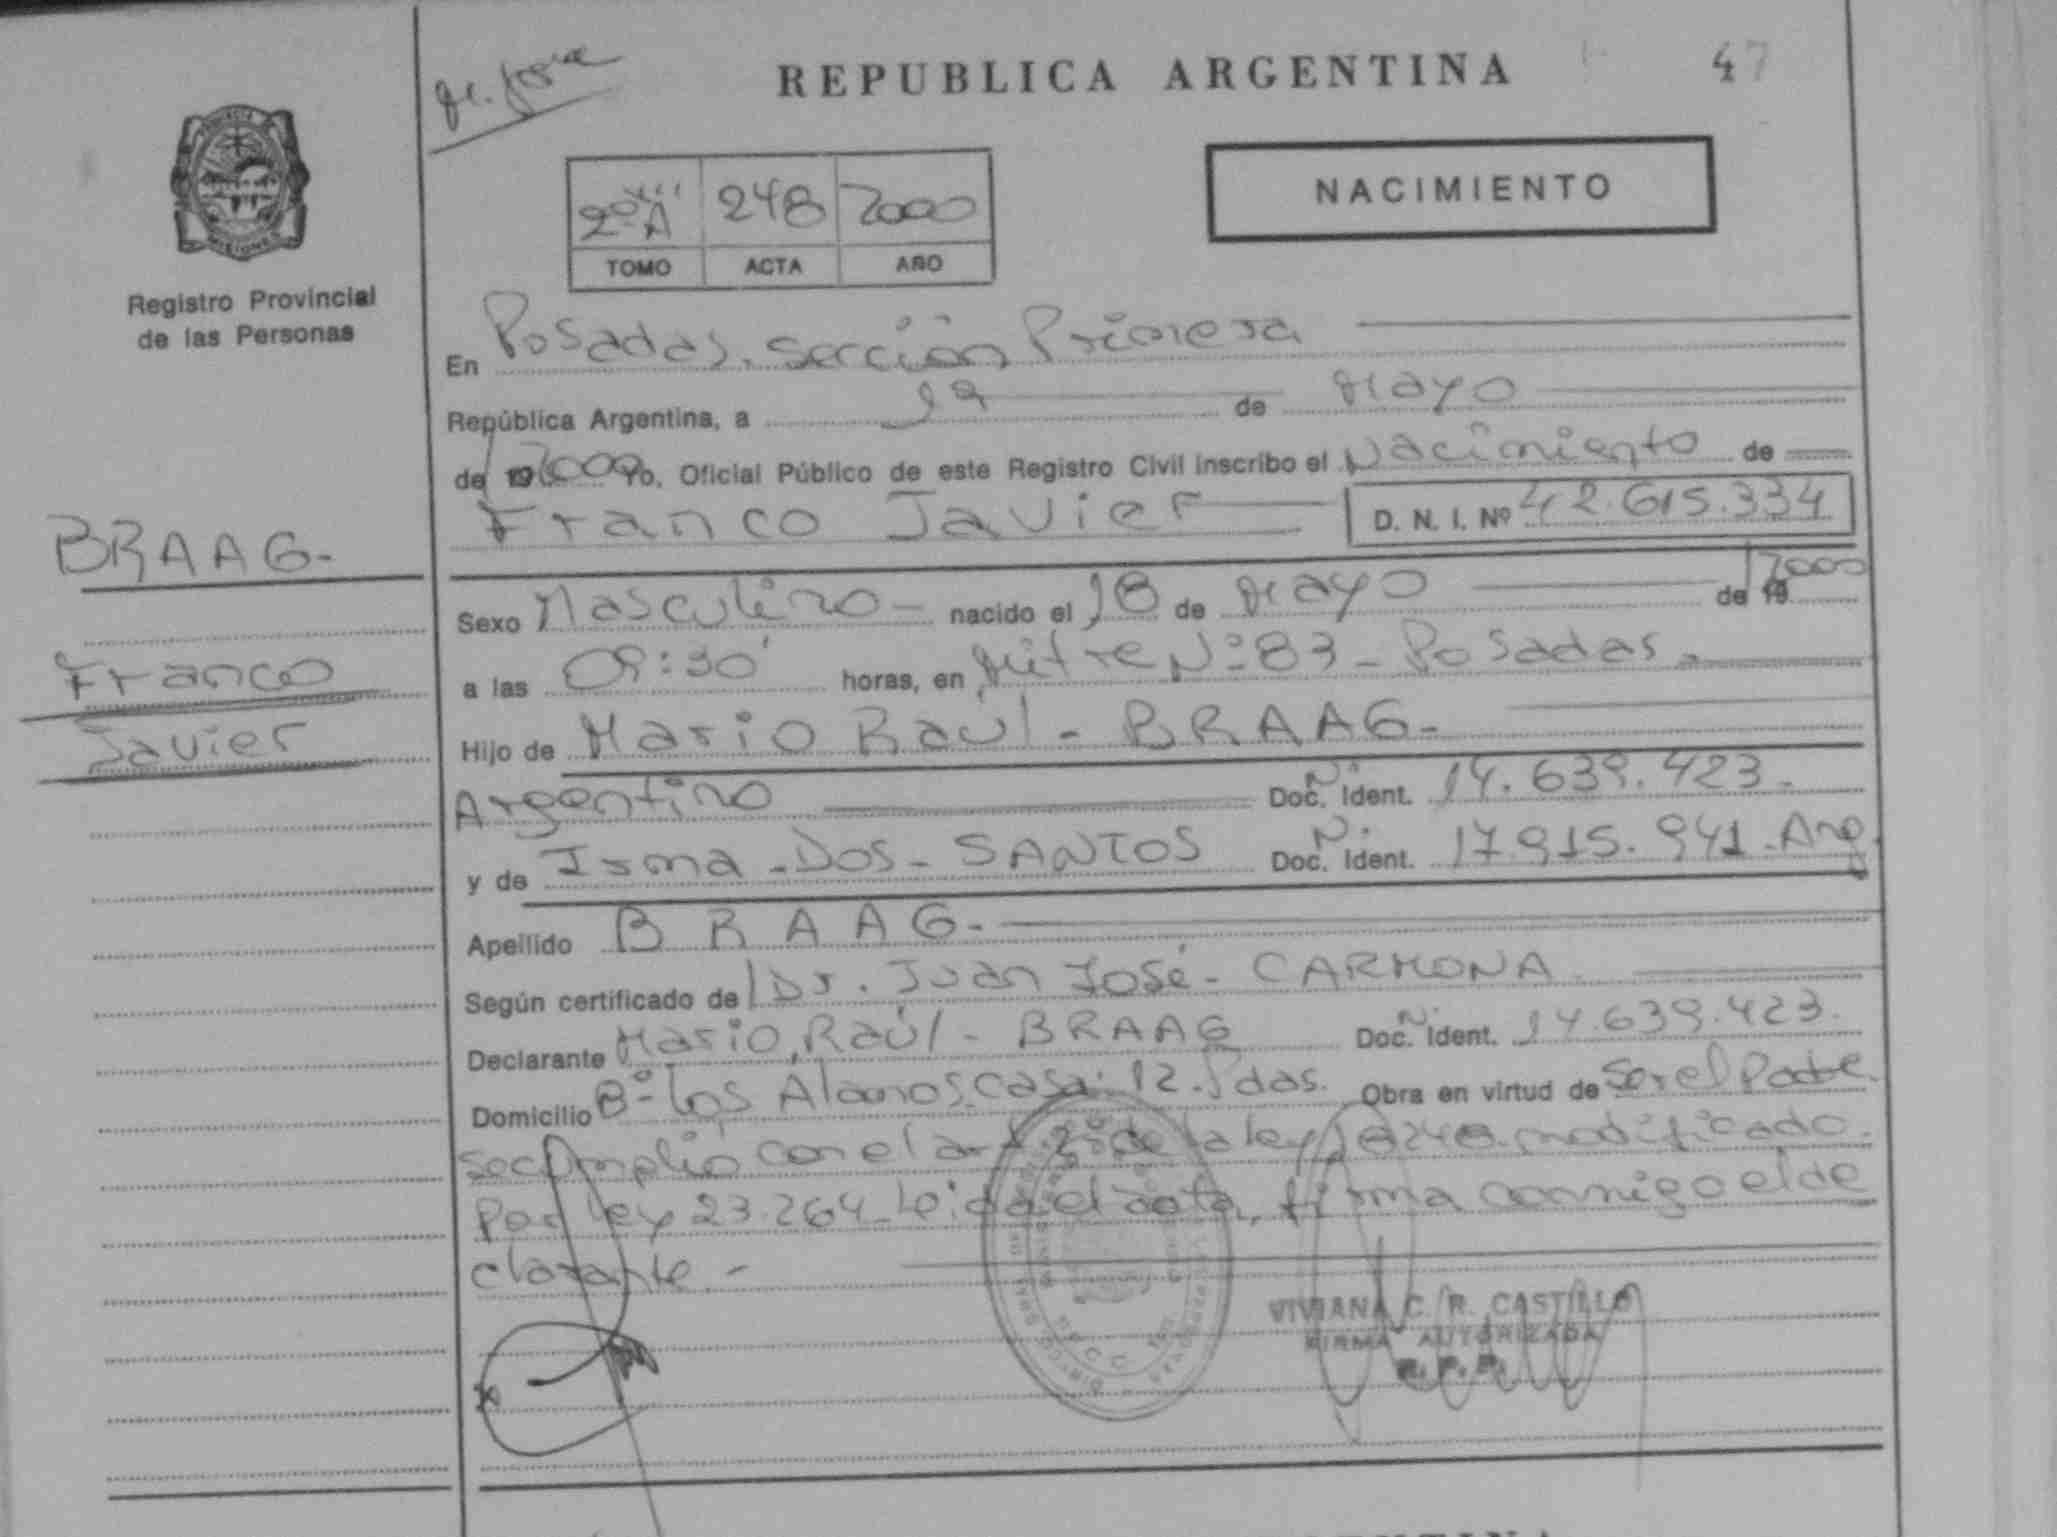 REPUBLICA ARGENTINA
47
Registro Provincial
de las Personas
2º "A" 248 2000
TOMO ACTA AÑO
NACIMIENTO
En Posadas, sección Primera
República Argentina, a 19 de Mayo
de 2000 Yo, Oficial Público de este Registro Civil inscribo el Nacimiento de
Franco Javier D. N. I. Nº 42.615.334
BRAAG-
Franco
Javier
Sexo Masculino - nacido el 18 de Mayo de 19 2000
a las 09:30' horas, en Mitre Nº 83 - Posadas.
Hijo de Mario Raúl - BRAAG-
Argentino Doc. Ident. N. 14.639.423.-
y de Irma - DOS - SANTOS Doc. Ident. N. 17.915.941. Arg.
Apellido BRAAG.-
Según certificado de Dr. Juan José - CARMONA
Declarante Mario Raúl - BRAAG Doc. Ident. N. 14.639.423.
Domicilio Bº Los Álamos Casa: 12. Pdas. Obra en virtud de Ser el Padre.
se cumplió con el art 2º de la ley 18248 modificado
Por ley 23.264 Leída el acta, firma conmigo el de
clarante.-
VIVIANA C. R. CASTILLO
FIRMA AUTORIZADA
R. P. P.